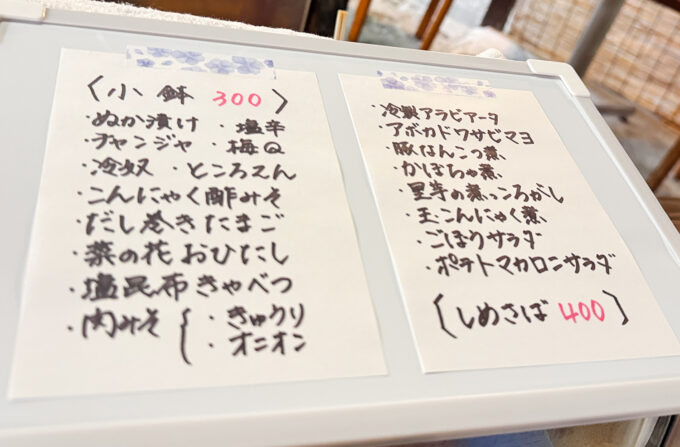 〈小鉢 300〉
・ぬか漬け ・塩辛
・チャンジャ ・梅Q
・冷奴 ・ところてん
・こんにゃく酢みそ
・だし巻きたまご
・菜の花おひたし
・塩昆布きゃべつ
・肉みそ { ・きゅうり
・オニオン
・冷製アラビアータ
・アボカドワサビマヨ
・豚なんこつ煮
・かぼちゃ煮
・里芋の煮っころがし
・玉こんにゃく煮
・ごぼうサラダ
・ポテトマカロンサラダ
〔しめさば 400〕